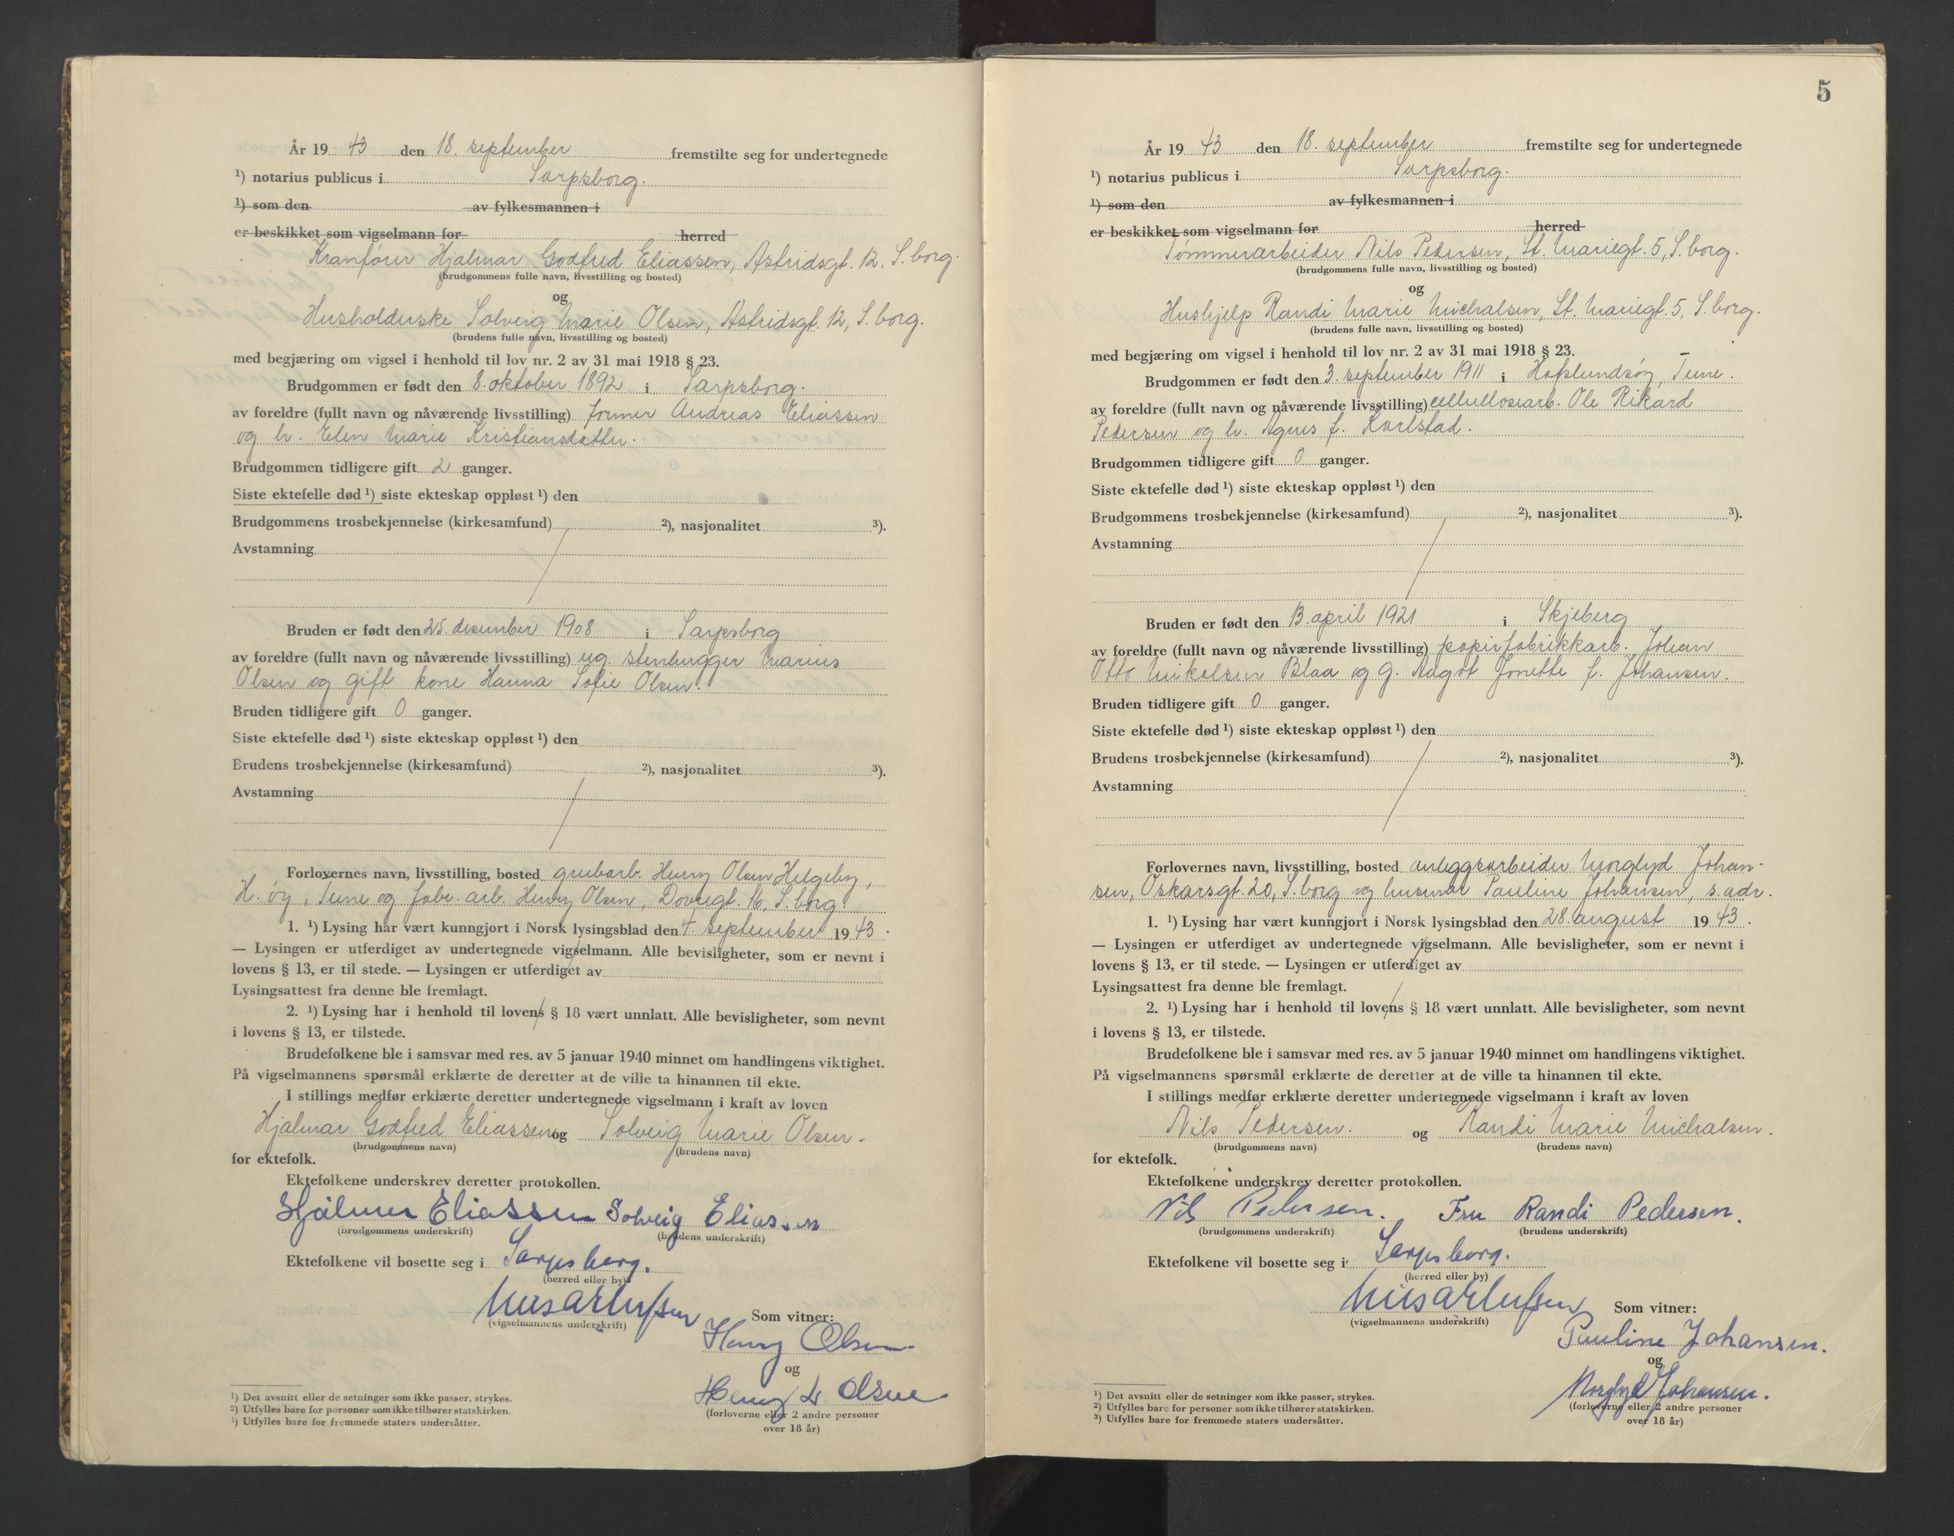 År 19 43 den 18. september fremstilte seg for undertegnede
¹) notarius publicus i Sarpsborg.
¹) som den av fylkesmannen i
er beskikket som vigselmann for herred
Kranfører Hjalmar Godfred Eliassen, Astridsgt. 12, S.borg.
(brudgommens fulle navn, livsstilling og bosted)
og
Husholderske Solveig Marie Olsen, Astridsgt. 12, S.borg.
(brudens fulle navn, livsstilling og bosted)
med begjæring om vigsel i henhold til lov nr. 2 av 31 mai 1918 § 23.
Brudgommen er født den 8. oktober 1892 i Sarpsborg.
av foreldre (fullt navn og nåværende livsstilling) former Andreas Eliassen
og h. Elen Marie Kristiansdatter.
Brudgommen tidligere gift 2 ganger.
Siste ektefelle død ¹) siste ekteskap oppløst ¹) den
Brudgommens trosbekjennelse (kirkesamfund) ²), nasjonalitet ³).
Avstamning
Bruden er født den 25. desember 1908 i Sarpsborg
av foreldre (fullt navn og nåværende livsstilling) ug. stenhugger Marius
Olsen og gift kone Hanna Sofie Olsen.
Bruden tidligere gift 0 ganger.
Siste ektefelle død ¹) siste ekteskap oppløst ¹) den
Brudens trosbekjennelse (kirkesamfund) ²), nasjonalitet ³).
Avstamning
Forlovernes navn, livsstilling, bosted grubarb. Henry Olsen Helgeby,
H.øy, Tune og fabr. arb. Henry Olsen, Dovregt. 16, S.borg.
1. ¹) Lysing har vært kunngjort i Norsk lysingsblad den 4. september 19 43.
— Lysingen er utferdiget av undertegnede vigselmann. Alle bevisligheter, som er nevnt i
lovens § 13, er til stede. — Lysingen er utferdiget av
Lysingsattest fra denne ble fremlagt.
2. ¹) Lysing har i henhold til lovens § 18 vært unnlatt. Alle bevisligheter, som nevnt
i lovens § 13, er tilstede.
Brudefolkene ble i samsvar med res. av 5 januar 1940 minnet om handlingens viktighet.
På vigselmannens spørsmål erklærte de deretter at de ville ta hinannen til ekte.
I stillings medfør erklærte deretter undertegnede vigselmann i kraft av loven
Hjalmar Godfred Eliassen og Solveig Marie Olsen.
(brudgommens navn) (brudens navn)
for ektefolk.
Ektefolkene underskrev deretter protokollen.
Hjalmer Eliassen Solveig Eliassen
(brudgommens underskrift) (brudens underskrift)
Ektefolkene vil bosette seg i Sarpsborg.
(herred eller by)
(vigselmannens underskrift) Som vitner:
Henry Olsen
og
Henry L Olsen
(forloverne eller 2 andre personer
over 18 år)
¹) Det avsnitt eller de setninger som ikke passer, strykes.
²) Utfylles bare for personer som ikke tilhører statskirken.
³) Utfylles bare for fremmede staters undersåtter.
5
År 19 43 den 18. september fremstilte seg for undertegnede
¹) notarius publicus i Sarpsborg.
¹) som den av fylkesmannen i
er beskikket som vigselmann for herred
Tømmerarbeider Nils Pedersen, St. Mariegt. 5, S.borg.
(brudgommens fulle navn, livsstilling og bosted)
og
Hushjelp Randi Marie Michalsen, St. Mariegt. 5, S.borg.
(brudens fulle navn, livsstilling og bosted)
med begjæring om vigsel i henhold til lov nr. 2 av 31 mai 1918 § 23.
Brudgommen er født den 3. september 1911 i Hafslundsøy, Tune.
av foreldre (fullt navn og nåværende livsstilling) cellulosearb. Ole Rikard
Pedersen og h. Agnes f. Karlstad.
Brudgommen tidligere gift 0 ganger.
Siste ektefelle død ¹) siste ekteskap oppløst ¹) den
Brudgommens trosbekjennelse (kirkesamfund) ²), nasjonalitet ³).
Avstamning
Bruden er født den 13. april 1921 i Skjeberg
av foreldre (fullt navn og nåværende livsstilling) papirfabrikkarb. Johan
Otto Mikalsen Blaa og g. Aagot Jonette f. Johansen.
Bruden tidligere gift 0 ganger.
Siste ektefelle død ¹) siste ekteskap oppløst ¹) den
Brudens trosbekjennelse (kirkesamfund) ²), nasjonalitet ³).
Avstamning
Forlovernes navn, livsstilling, bosted anleggsarbeider Norglyd Johan-
sen, Oskarsgt. 20, S.borg og husmor Pauline Johansen, s. adr.
1. ¹) Lysing har vært kunngjort i Norsk lysingsblad den 28. august 19 43.
— Lysingen er utferdiget av undertegnede vigselmann. Alle bevisligheter, som er nevnt i
lovens § 13, er til stede. — Lysingen er utferdiget av
Lysingsattest fra denne ble fremlagt.
2. ¹) Lysing har i henhold til lovens § 18 vært unnlatt. Alle bevisligheter, som nevnt
i lovens § 13, er tilstede.
Brudefolkene ble i samsvar med res. av 5 januar 1940 minnet om handlingens viktighet.
På vigselmannens spørsmål erklærte de deretter at de ville ta hinannen til ekte.
I stillings medfør erklærte deretter undertegnede vigselmann i kraft av loven
Nils Pedersen. og Randi Marie Michalsen.
(brudgommens navn) (brudens navn)
for ektefolk.
Ektefolkene underskrev deretter protokollen.
Nils Pedersen. Fru Randi Pedersen.
(brudgommens underskrift) (brudens underskrift)
Ektefolkene vil bosette seg i Sarpsborg.
(herred eller by)
(vigselmannens underskrift) Som vitner:
Pauline Johansen.
og
Norglyd Johansen.
(forloverne eller 2 andre personer
over 18 år)
¹) Det avsnitt eller de setninger som ikke passer, strykes.
²) Utfylles bare for personer som ikke tilhører statskirken.
³) Utfylles bare for fremmede staters undersåtter.